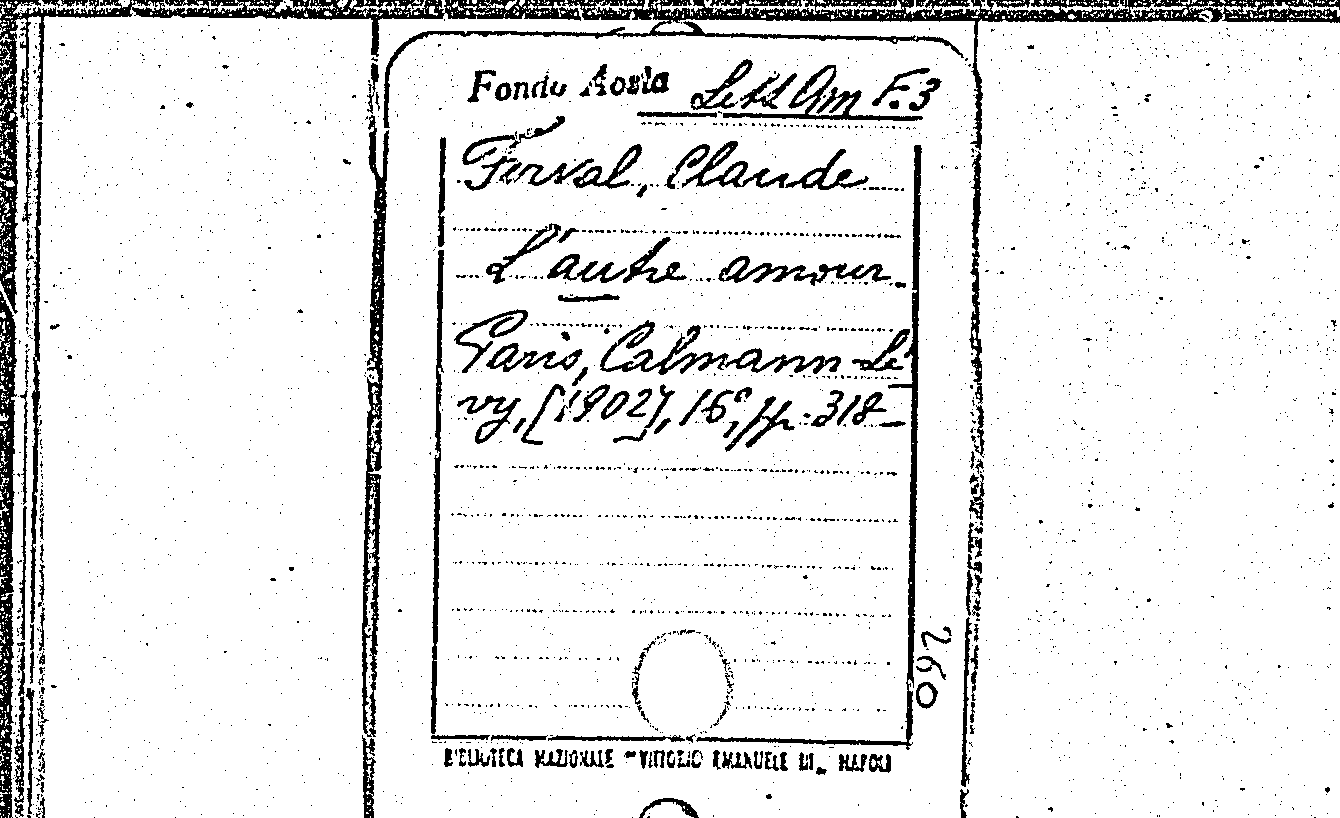 Fondo Aosta Lett Am F. 3
Ferval, Claude
L'autre amour.
Paris, Calmann-Lé
vy, [1902], 16°, pp. 318-
260
BIBLIOTECA NAZIONALE "VITTORIO EMANUELE III„ NAPOLI